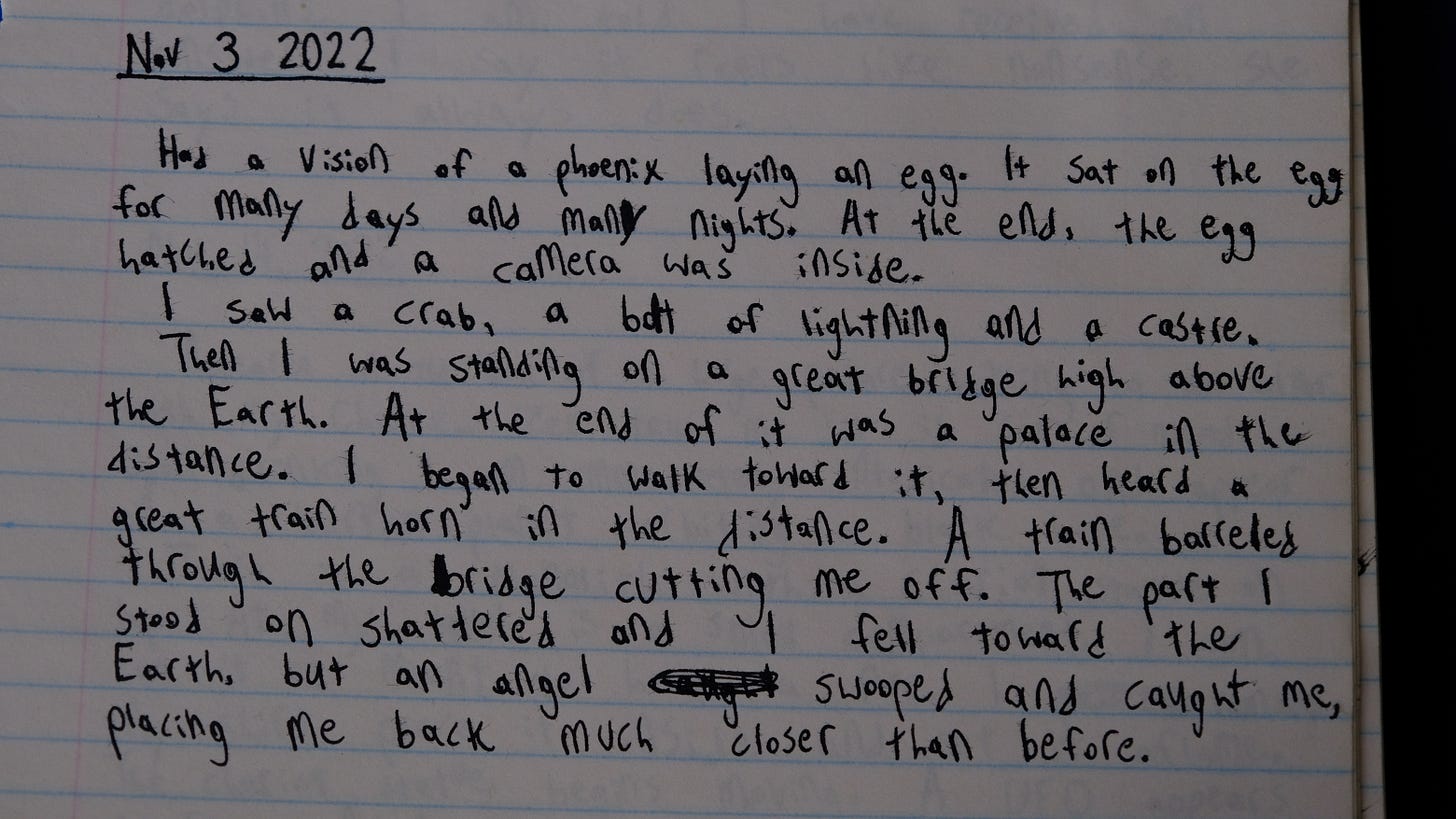 Nov 3 2022
Had a vision of a phoenix laying an egg. It sat on the egg
for many days and many nights. At the end, the egg
hatched and a camera was inside.
I saw a crab, a bolt of lightning and a castle.
Then I was standing on a great bridge high above
the Earth. At the end of it was a palace in the
distance. I began to walk toward it, then heard a
great train horn in the distance. A train barreled
through the bridge cutting me off. The part I
stood on shattered and I fell toward the
Earth, but an angel swooped and caught me,
placing me back much closer than before.